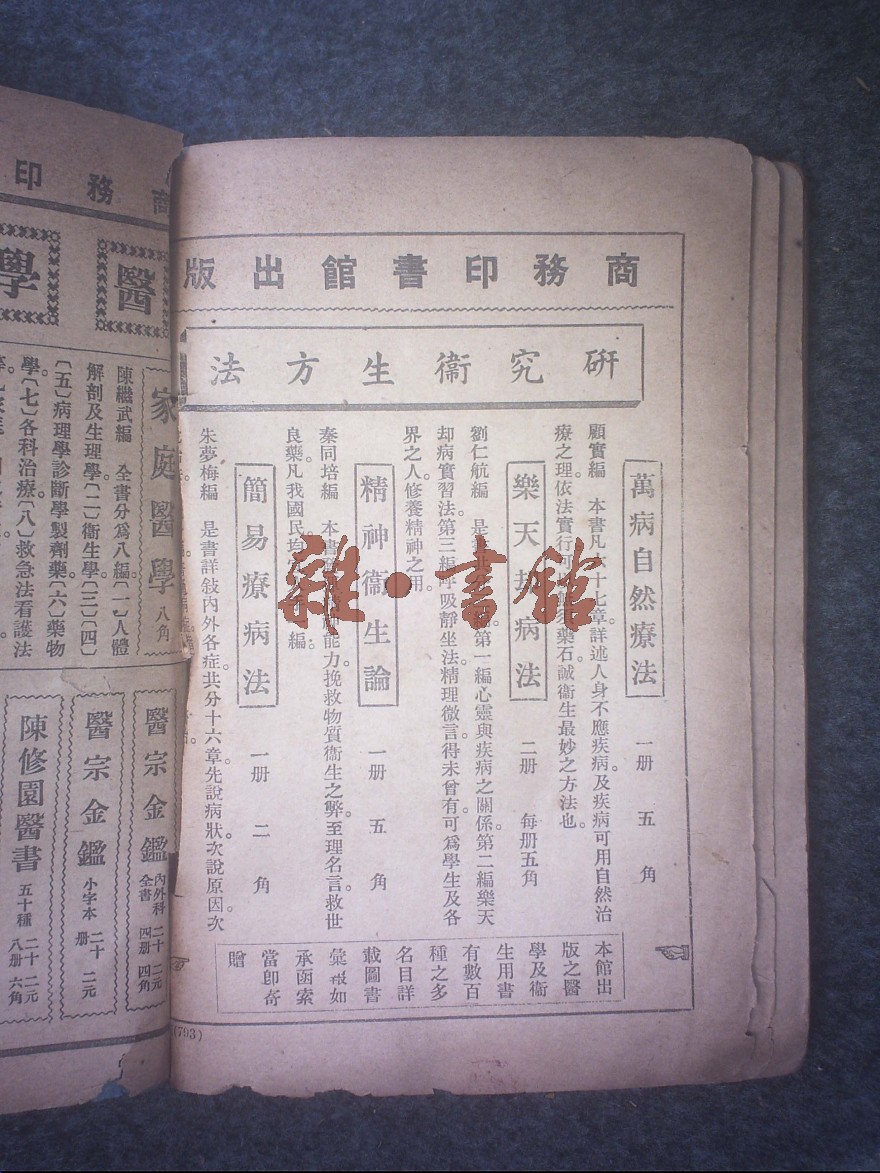 商務印書館出版
研究衞生方法
萬病自然療法 一册 五角
顧實編 本書凡 十七章詳述人身不應疾病及疾病可用自然治
療之理依法實行可 藥石誠衞生最妙之方法也。
樂天却病法 二册 每册五角
劉仁航編 是 第一編心靈與疾病之關係。第二編樂天
却病實習法。第三編呼吸靜坐法。精理微言。得未曾有。可爲學生及各
界之人修養精神之用。
精神衞生論 一册 五角
秦同培編 本書 能力。挽救物質衞生之弊。至理名言。救世
良藥。凡我國民均 編
簡易療病法 一册 二角
朱夢梅編 是書詳敍內外各症。共分十六章。先說病狀。次說原因。次
本館出
版之醫
學及衞
生用書
有數百
種之多
名目詳
載圖書
彙報如
承函索
當卽奇
贈
(793)
雜·書館
商務印
醫學
家庭醫學 八角
陳繼武編 全書分爲八編〔一〕人體
解剖及生理學〔二〕衞生學〔三〕〔四〕
〔五〕病理學診斷學製劑藥〔六〕藥物
學〔七〕各科治療〔八〕救急法看護法
醫宗金鑑 內外科全書 二十四册 二元四角
醫宗金鑑 小字本 二十册 二元
陳修園醫書 五十種 二十八册 二元六角